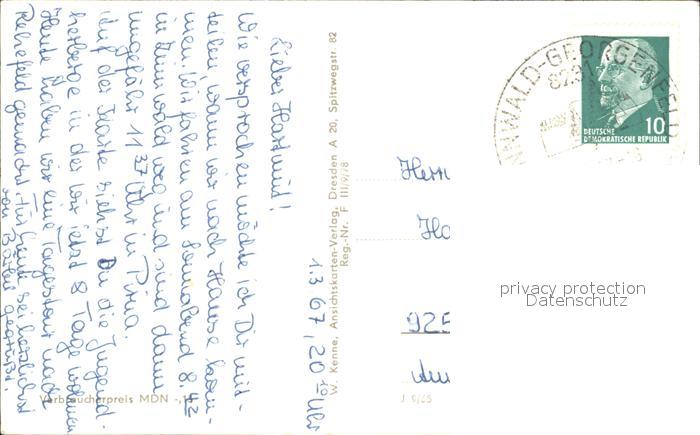 1.3.67, 20 10 Uhr
Lieber Hartmut!
Wie versprochen möchte ich Dir mit-
teilen, wann wir nach Hause kom-
men. Wir fahren am Sonnabend 8.42
in Zinnwald weg und sind dann
ungefähr 11 37 Uhr in Pirna.
Auf der Karte siehst Du die Jugend-
herberge in der wir jetzt 8 Tage wohnen
Heute haben wir eine Tagestour nach
Rehefeld gemacht. Für heute sei herzlichst
von Bärbel gegrüßt.
W. Kenne, Ansichtskarten-Verlag, Dresden A 20, Spitzwegstr. 82
Reg.-Nr. F III/9/78
Verbraucherpreis MDN -,15
J 9/65
ZINNWALD-GEORGENFELD
DEUTSCHE
DEMOKRATISCHE REPUBLIK
10
Herrn
Ha
925
Am
privacy protection
Datenschutz